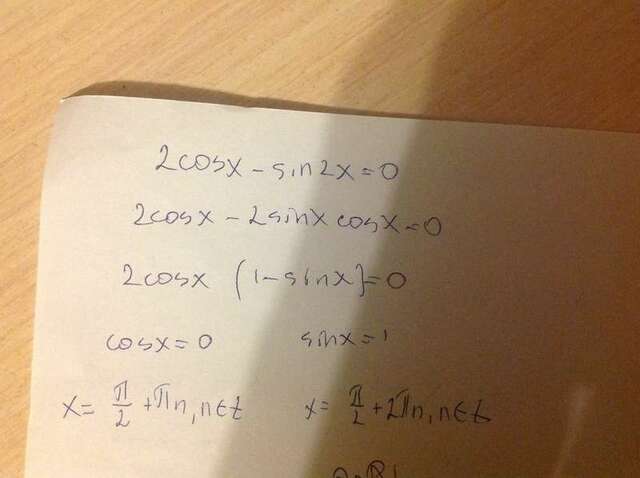 2cosx - sin2x = 0
2cosx - 2sinx cosx = 0
2cosx (1 - sinx) = 0
cosx = 0 sinx = 1
x = π/2 + πn, n ∈ Z x = π/2 + 2πn, n ∈ Z